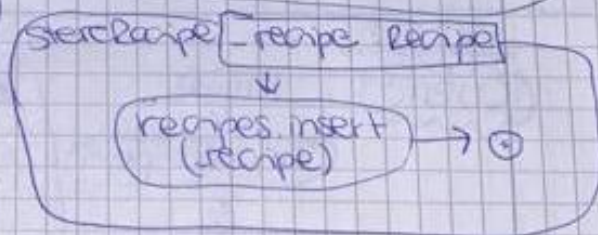 storeRecipe _recipe Recipe
recipes.insert
(_recipe)